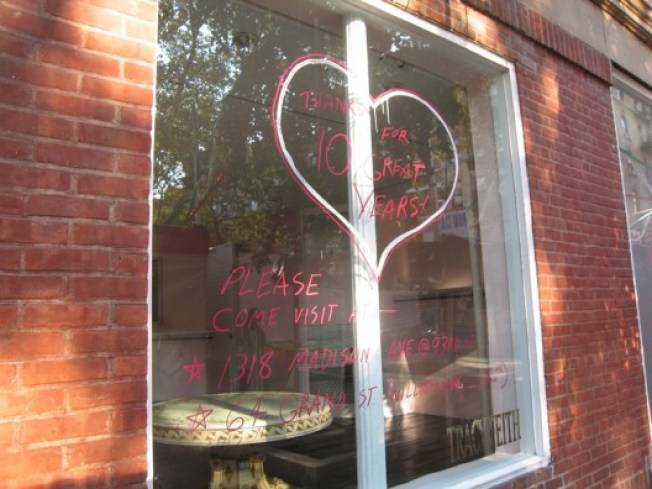 THANKS FOR
10 GREAT
YEARS!
PLEASE
COME VISIT AT—
☆ 1318 MADISON AVE @ 93RD ST
☆ 64 GRAND ST
TRACY FEITH